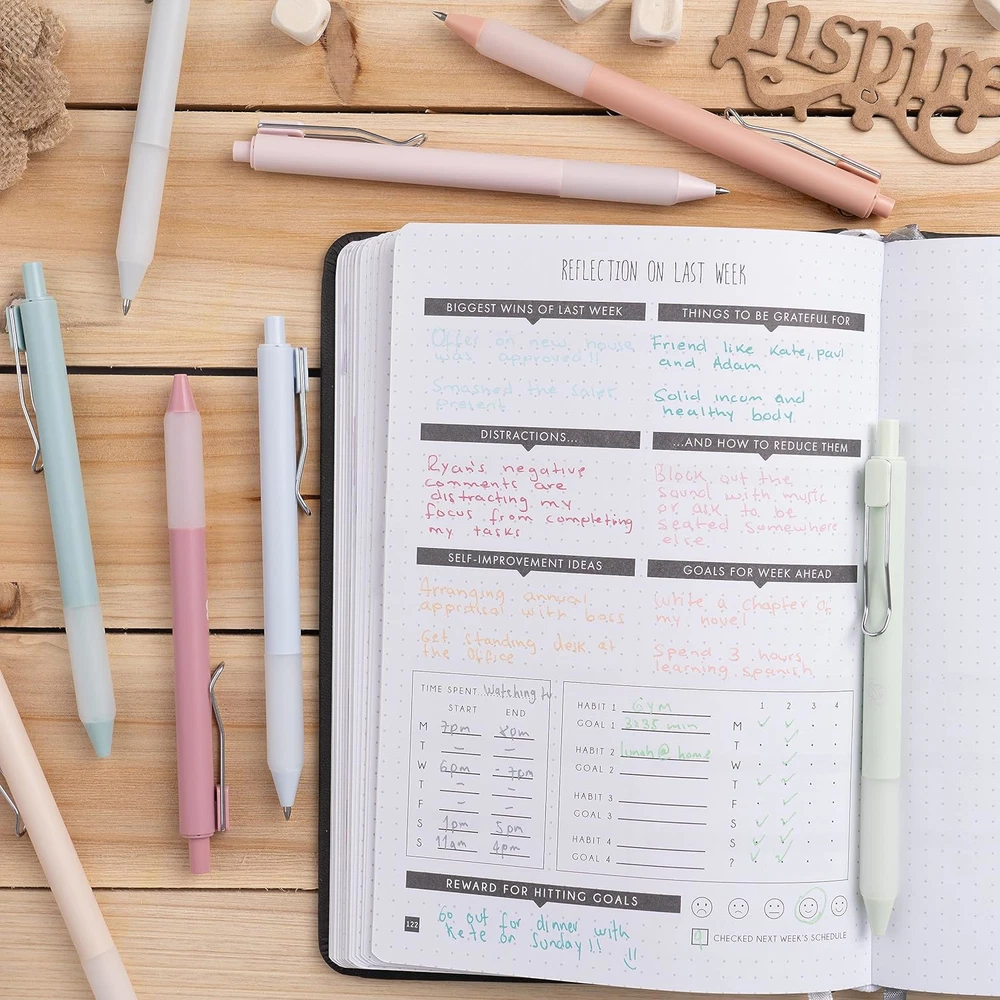 Inspire
REFLECTION ON LAST WEEK
BIGGEST WINS OF LAST WEEK
Offer on new house
was approved!!
Smashed the sales
present
THINGS TO BE GRATEFUL FOR
Friend like Kate, paul
and Adam
Solid incum and
healthy body
DISTRACTIONS...
Ryan's negative
comments are
distracting my
focus from completing
my tasks
...AND HOW TO REDUCE THEM
Block out the
sound with music
or ask to be
seated somewhere
else.
SELF-IMPROVEMENT IDEAS
Arranging annual
appraisal with boss
Get standing desk at
the office
GOALS FOR WEEK AHEAD
Write a chapter of
my novel
Spend 3 hours
learning spanish
TIME SPENT... Watching tv
START END
M 7pm 8pm
T – –
W 6pm - 7pm
T – –
F – –
S 1pm 5pm
S 11am 4pm
HABIT 1 Gym
GOAL 1 3x35 min
HABIT 2 lunch @ home
GOAL 2
HABIT 3
GOAL 3
HABIT 4
GOAL 4
1 2 3 4
M ✓ ✓
T ✓
W ✓
T ✓
F ✓
S ✓ ✓
? ✓ ✓
REWARD FOR HITTING GOALS
Go out for dinner with
Kate on Sunday!!
122
CHECKED NEXT WEEK'S SCHEDULE